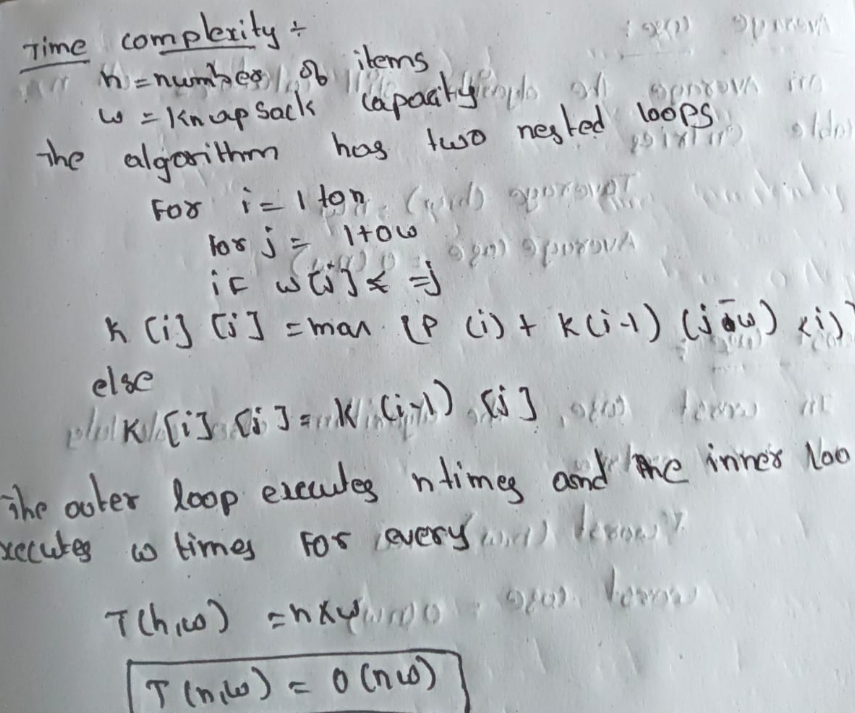 Time complexity ÷
n = number of items
w = Knapsack capacity
The algorithm has two nested loops
For i = 1 to n
for j = 1 to w
if w[i] < = j
K [i] [j] = max (P (i) + K (i-1) (j - w) (i)
else
K [i] [j] = K (i-1) [j]
The outer loop executes n times and the inner loo
xecutes w times For every
T(n,w) = n x w
T(n,w) = O(nw)